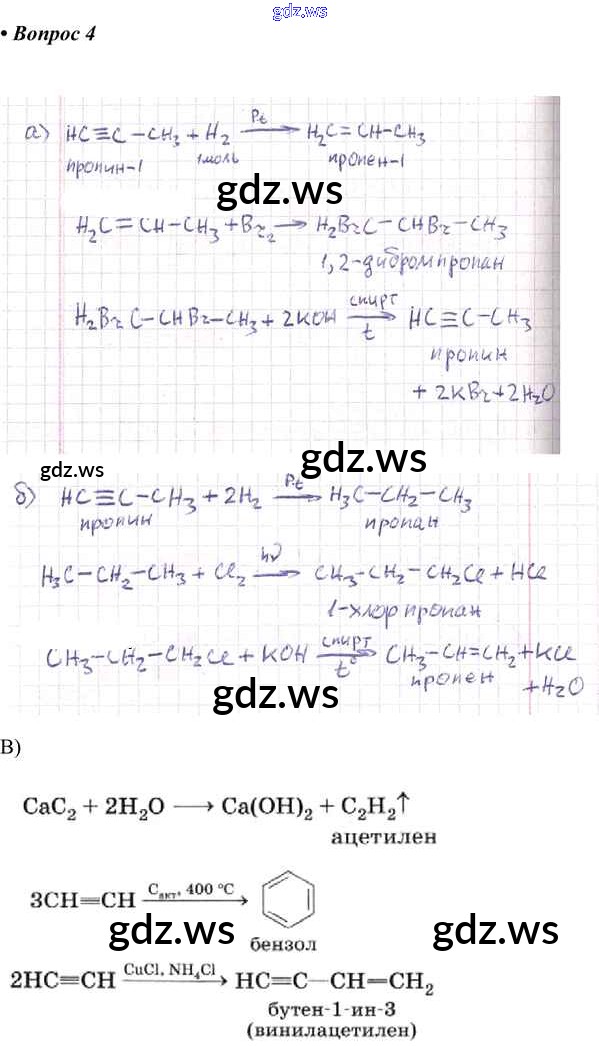 gdz.ws
• Вопрос 4
а) HC≡C–CH₃ + H₂ →(Pt) H₂C=CH–CH₃
пропин-1 1моль пропен-1
gdz.ws
H₂C=CH–CH₃ + Br₂ → H₂BrC–CHBr–CH₃
1,2-дибромпропан
H₂BrC–CHBr–CH₃ + 2KOH →(спирт, t) HC≡C–CH₃
пропин
+ 2KBr + 2H₂O
gdz.ws
gdz.ws
б) HC≡C–CH₃ + 2H₂ →(Pt) H₃C–CH₂–CH₃
пропин пропан
H₃C–CH₂–CH₃ + Cl₂ →(hν) CH₃–CH₂–CH₂Cl + HCl
1-хлорпропан
CH₃–CH₂–CH₂Cl + KOH →(спирт, t°) CH₃–CH=CH₂ + KCl
пропен + H₂O
gdz.ws
В)
CaC₂ + 2H₂O → Ca(OH)₂ + C₂H₂↑
ацетилен
3CH≡CH →(Cакт, 400 °C)
gdz.ws
gdz.ws
бензол
2HC≡CH →(CuCl, NH₄Cl) HC≡C–CH=CH₂
бутен-1-ин-3
(винилацетилен)